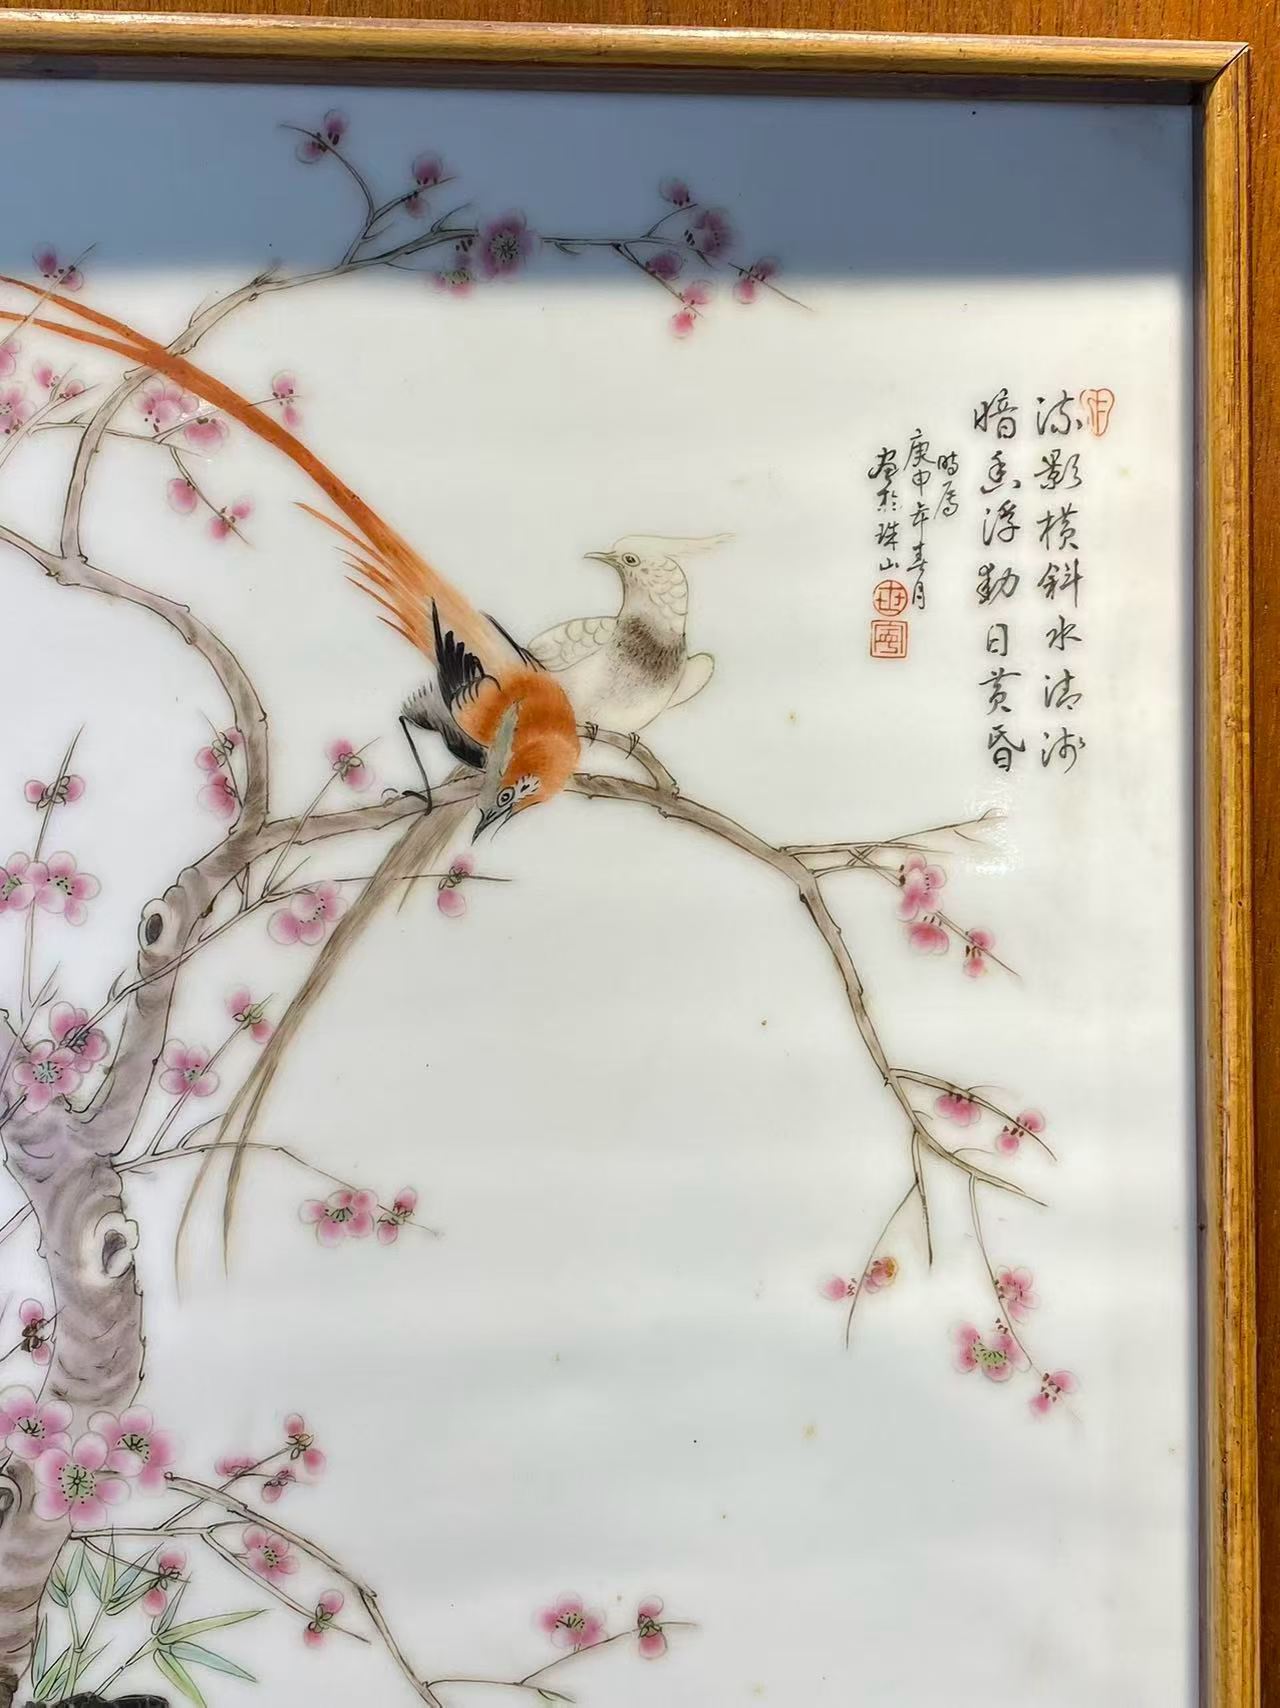 疏影横斜水清浅
暗香浮動日黄昏
時属
庚申年春月
畫於珠山